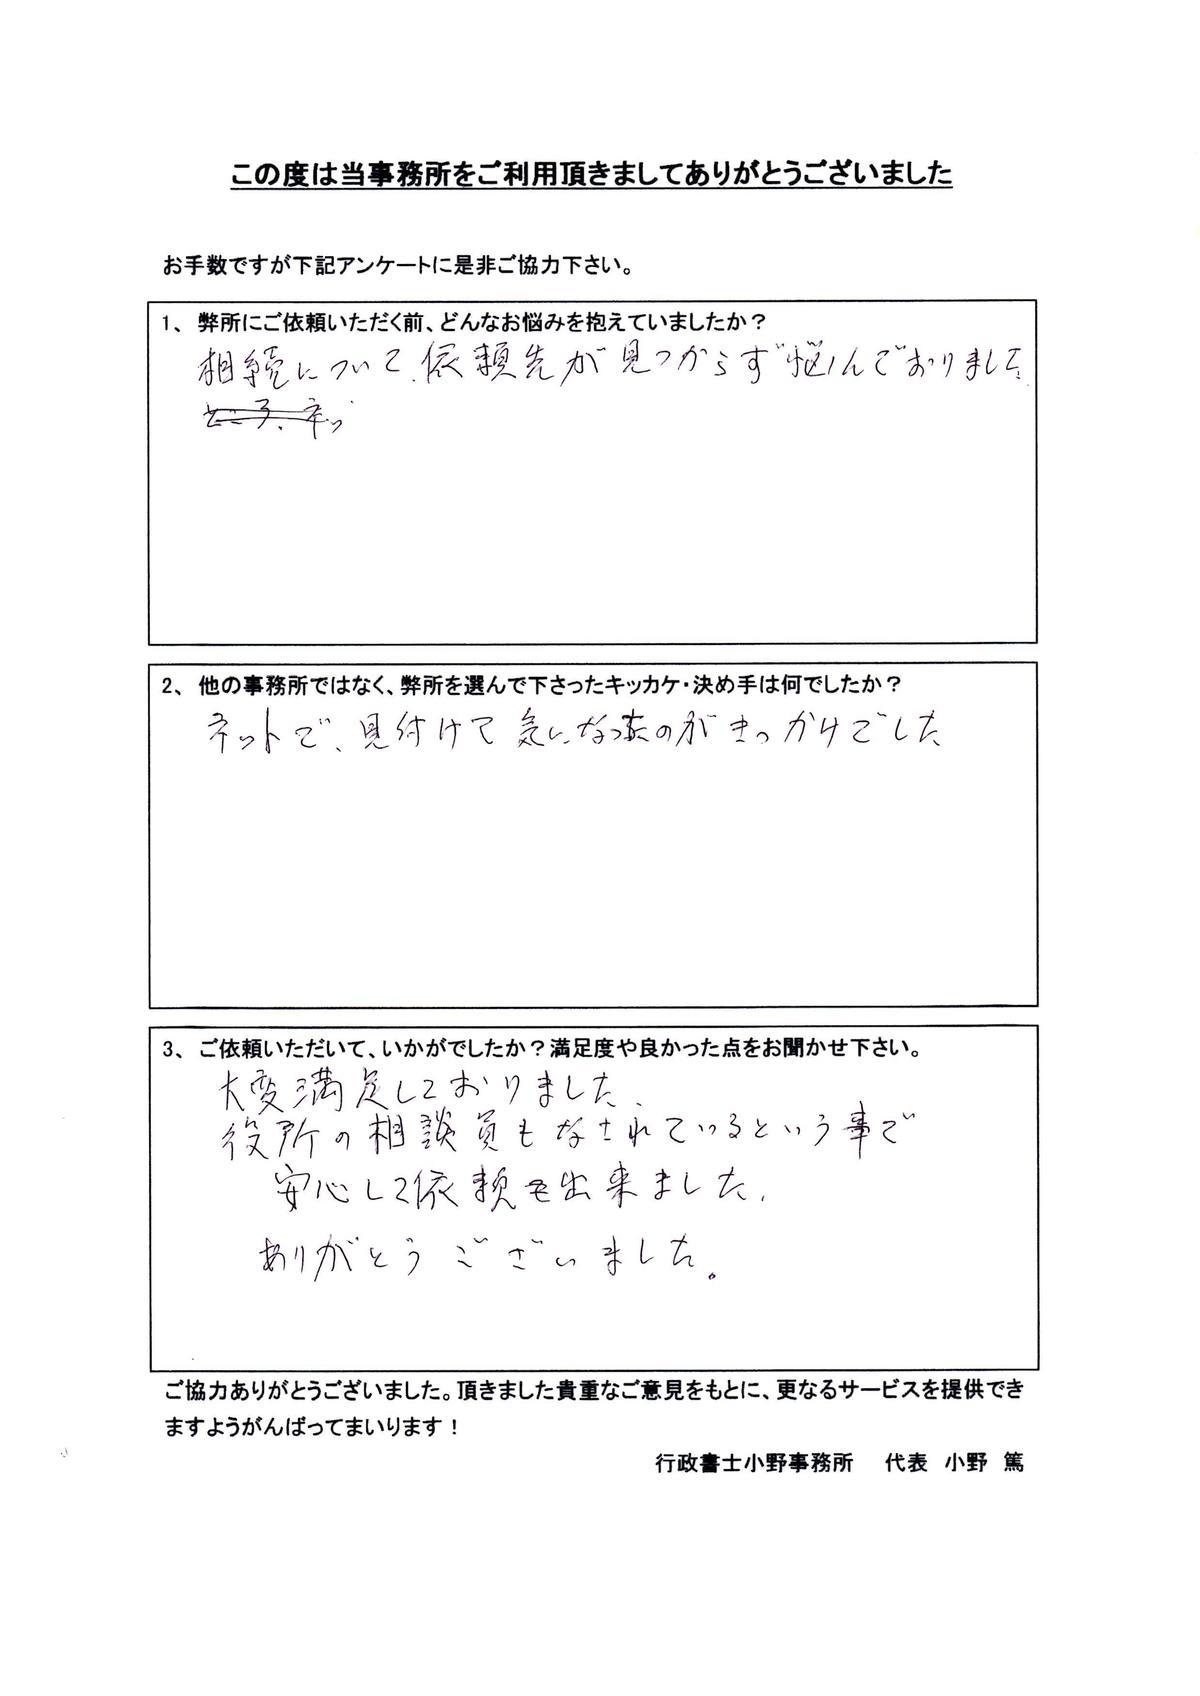 この度は当事務所をご利用頂きましてありがとうございました
お手数ですが下記アンケートに是非ご協力下さい。
1、 弊所にご依頼いただく前、どんなお悩みを抱えていましたか？
相続について、依頼先が見つからず悩んでおりました
ところ、ネッ
2、 他の事務所ではなく、弊所を選んで下さったキッカケ・決め手は何でしたか？
ネットで、見付けて気になったのがきっかけでした
3、 ご依頼いただいて、いかがでしたか？満足度や良かった点をお聞かせ下さい。
大変満足しております。
役所の相談員もなされているという事で
安心して依頼も出来ました。
ありがとうございました。
ご協力ありがとうございました。頂きました貴重なご意見をもとに、更なるサービスを提供でき
ますようがんばってまいります！
行政書士小野事務所 代表 小野 篤